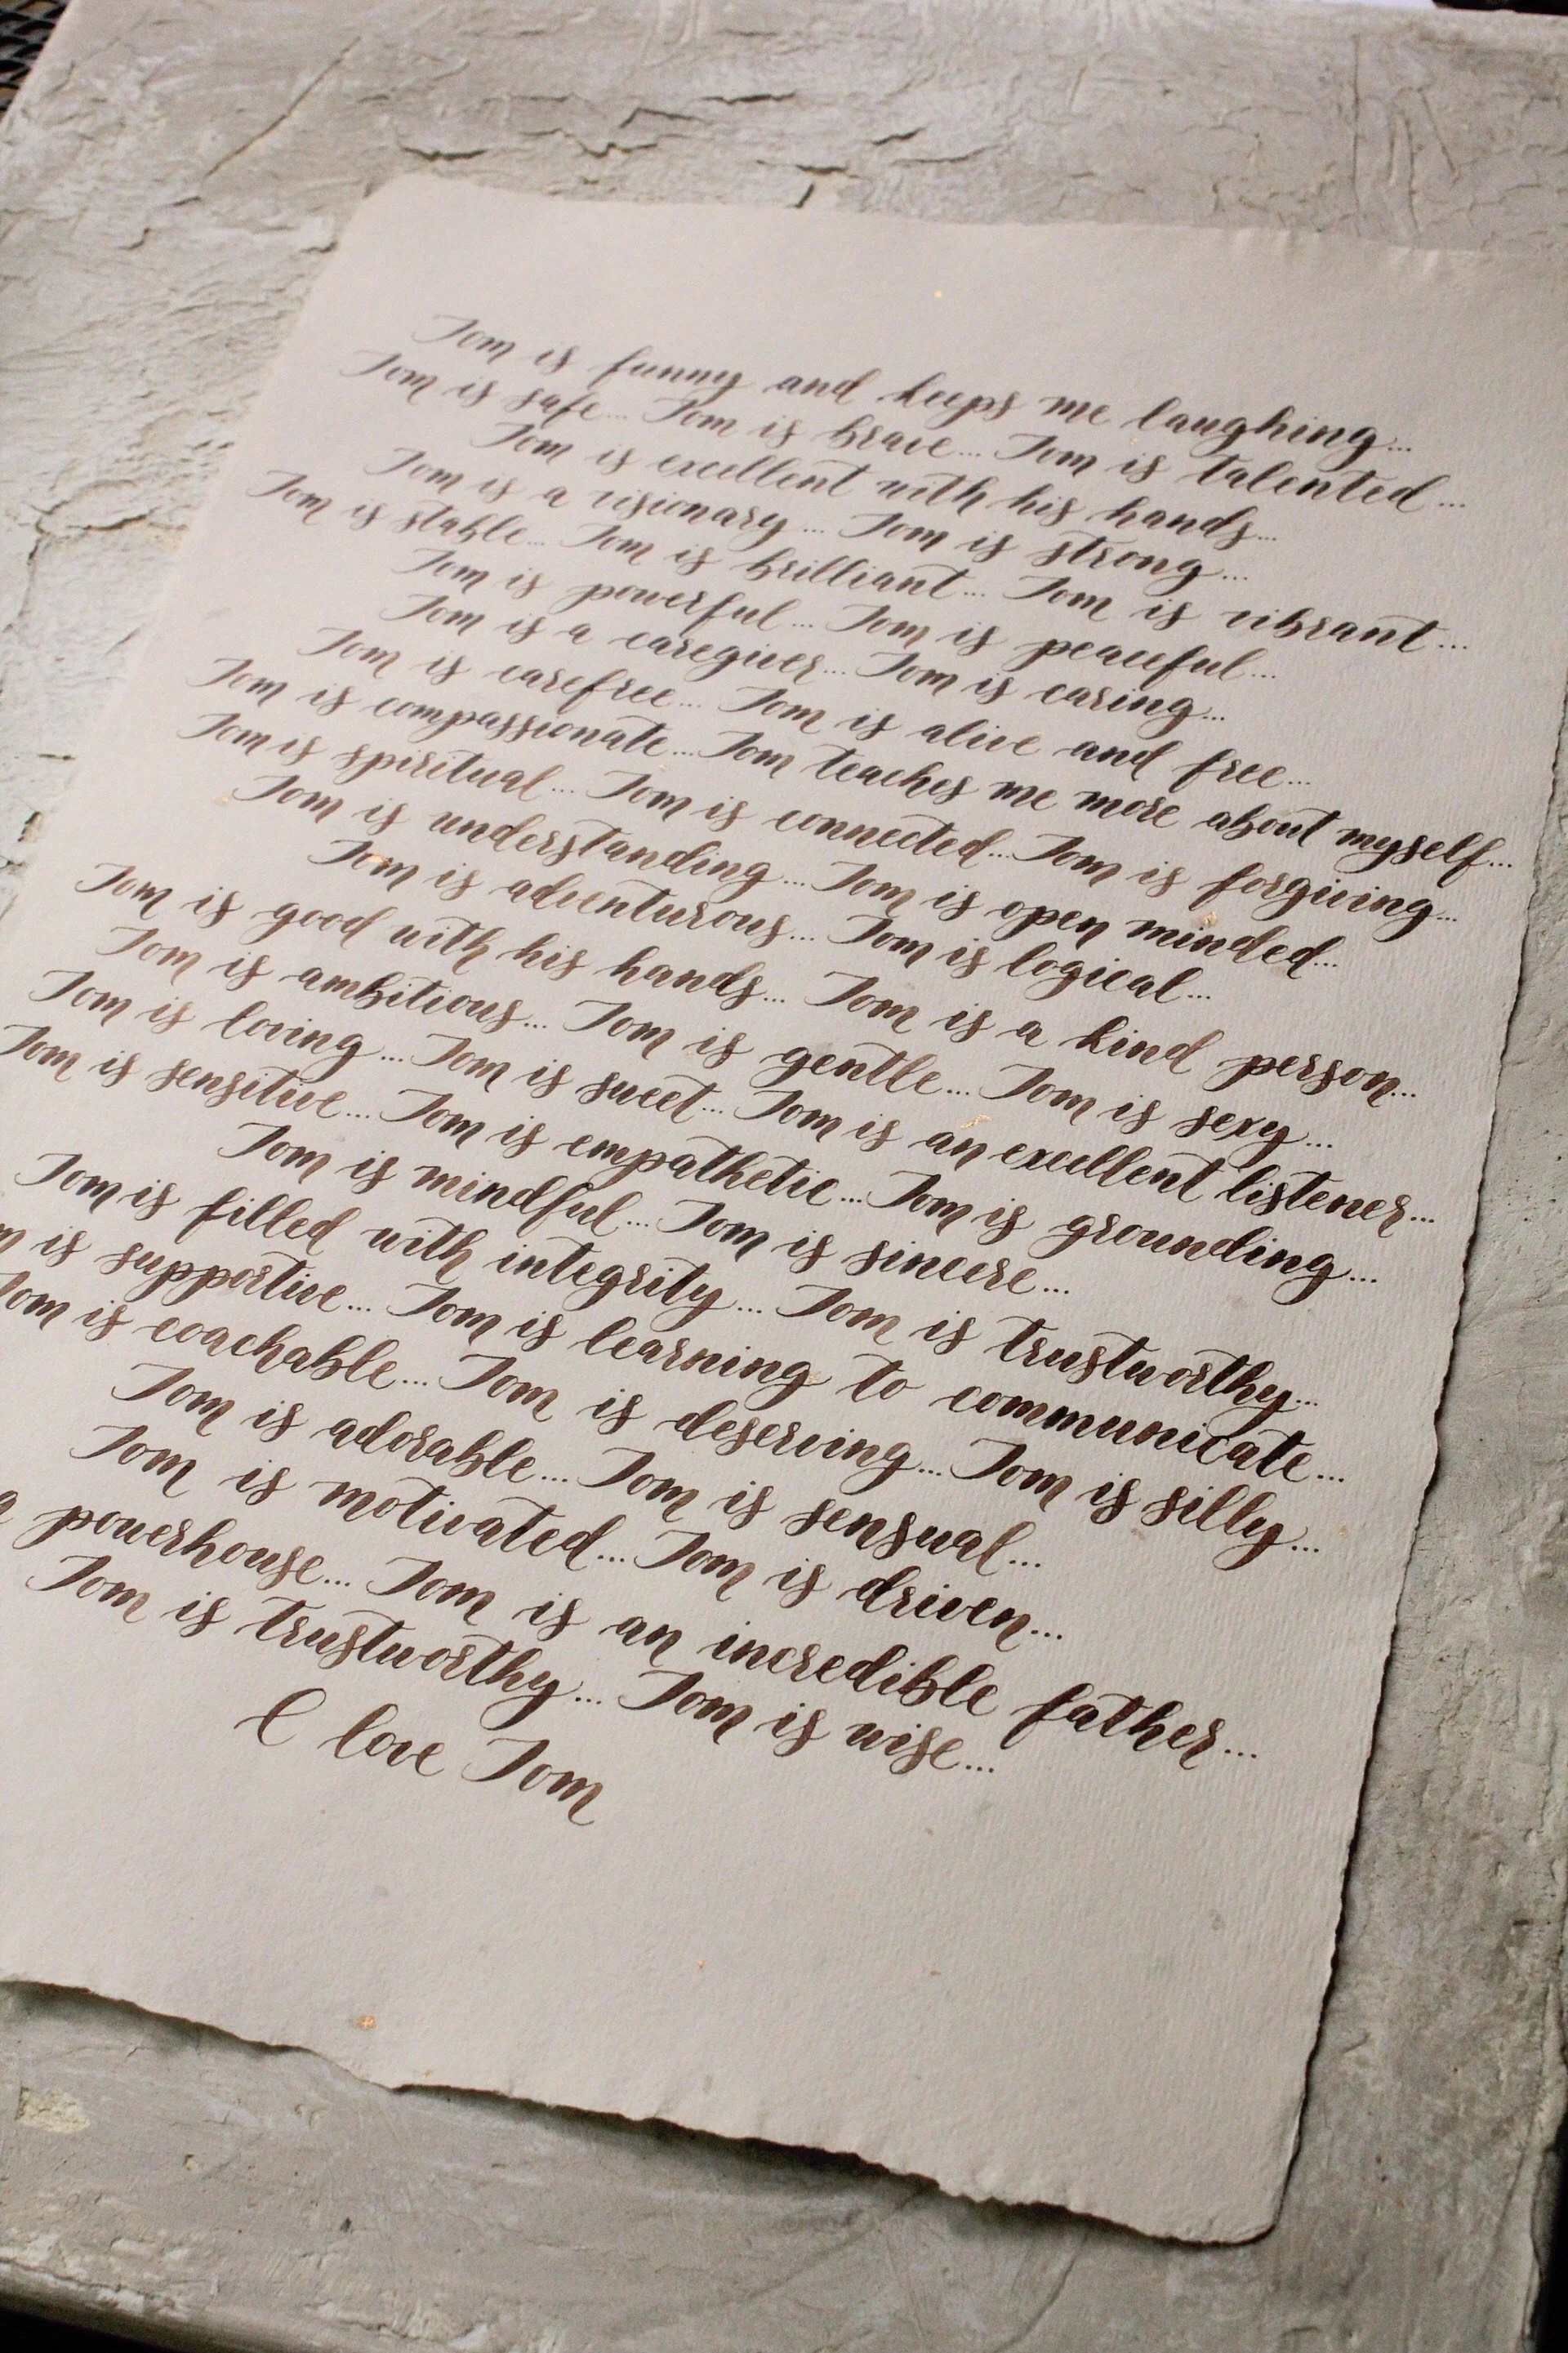 Tom is funny and keeps me laughing...
Tom is safe... Tom is brave... Tom is talented...
Tom is excellent with his hands...
Tom is a visionary... Tom is strong...
Tom is stable... Tom is brilliant... Tom is vibrant...
Tom is powerful... Tom is peaceful...
Tom is a caregiver... Tom is caring...
Tom is carefree... Tom is alive and free...
Tom is compassionate... Tom teaches me more about myself...
Tom is spiritual... Tom is connected... Tom is forgiving...
Tom is understanding... Tom is open minded...
Tom is adventurous... Tom is logical...
Tom is good with his hands... Tom is a kind person...
Tom is ambitious... Tom is gentle... Tom is sexy...
Tom is loving... Tom is sweet... Tom is an excellent listener...
Tom is sensitive... Tom is empathetic... Tom is grounding...
Tom is mindful... Tom is sincere...
Tom is filled with integrity... Tom is trustworthy...
m is supportive... Tom is learning to communicate...
Tom is coachable... Tom is deserving... Tom is silly...
Tom is adorable... Tom is sensual...
Tom is motivated... Tom is driven...
a powerhouse... Tom is an incredible father...
Tom is trustworthy... Tom is wise...
I love Tom